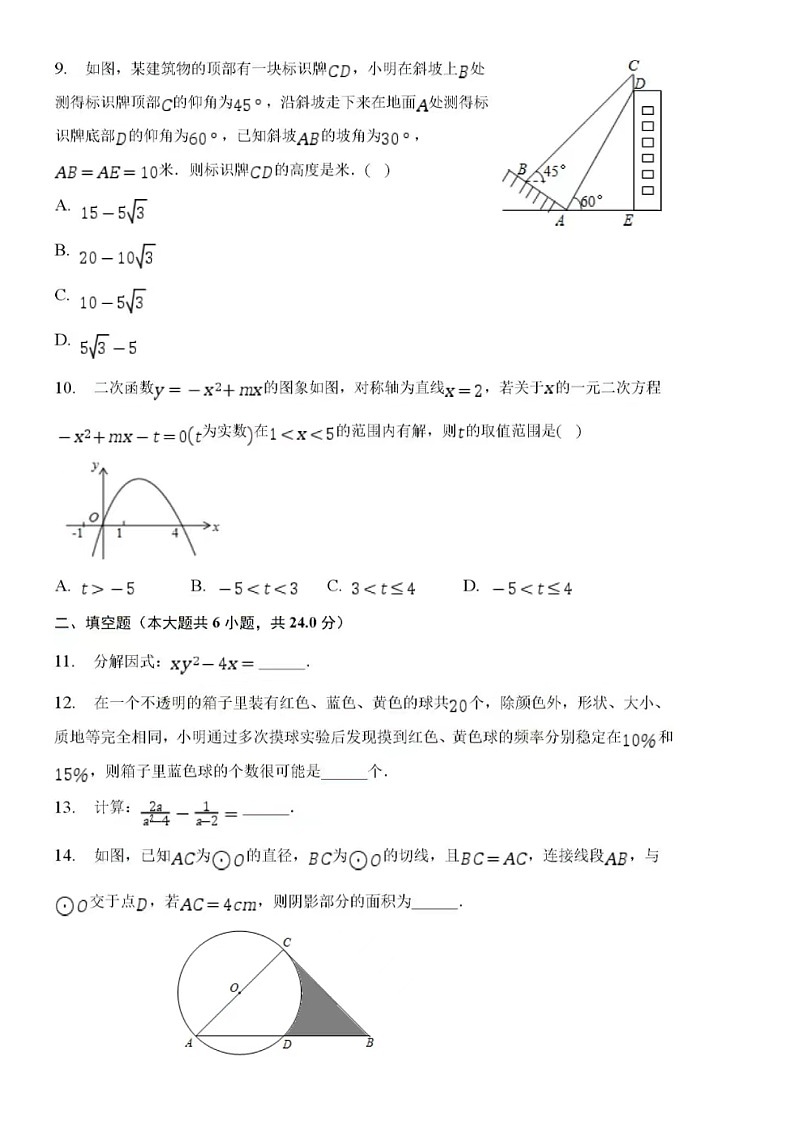 9. 如图，某建筑物的顶部有一块标识牌CD，小明在斜坡上B处
测得标识牌顶部C的仰角为45°，沿斜坡走下来在地面A处测得标
识牌底部D的仰角为60°，已知斜坡AB的坡角为30°，
AB=AE=10米．则标识牌CD的高度是米．( )
A. 15-5√3
B. 20-10√3
C. 10-5√3
D. 5√3-5
C
D
B
45°
60°
A
E
10. 二次函数y=-x²+mx的图象如图，对称轴为直线x=2，若关于x的一元二次方程
-x²+mx-t=0(t为实数)在1<x<5的范围内有解，则t的取值范围是( )
y
O
-1
1
4
x
A. t>-5 B. -5<t<3 C. 3<t≤4 D. -5<t≤4
二、填空题（本大题共6小题，共24.0分）
11. 分解因式：xy²-4x=______.
12. 在一个不透明的箱子里装有红色、蓝色、黄色的球共20个，除颜色外，形状、大小、
质地等完全相同，小明通过多次摸球实验后发现摸到红色、黄色球的频率分别稳定在10%和
15%，则箱子里蓝色球的个数很可能是______个．
13. 计算：2a/(a²-4) - 1/(a-2) =______.
14. 如图，已知AC为⊙O的直径，BC为⊙O的切线，且BC=AC，连接线段AB，与
⊙O交于点D，若AC=4cm，则阴影部分的面积为______.
C
O
A
D
B